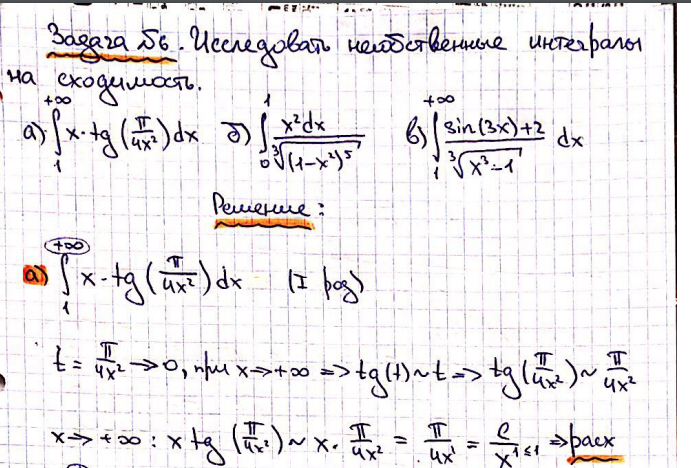 Задача №6. Исследовать несобственные интегралы
на сходимость.
а) ∫₁^{+∞} x·tg(π/4x²)dx б) ∫₀^1 x²dx/∛((1-x²)⁵) в) ∫₁^{+∞} (sin(3x)+2)/∛(x³-1) dx
Решение:
а) ∫₁^{+∞} x·tg(π/4x²)dx (I род)
t = π/4x² → 0, при x→+∞ => tg(t)~t => tg(π/4x²) ~ π/4x²
x→+∞: x tg(π/4x²) ~ x·π/4x² = π/4x¹ = C/x^{1≤1} => расх